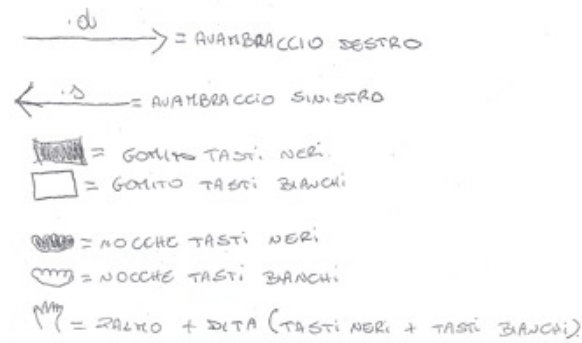 d
= AVAMBRACCIO DESTRO
s
= AVAMBRACCIO SINISTRO
= GOMITO TASTI NERI
= GOMITO TASTI BIANCHI
= NOCCHE TASTI NERI
= NOCCHE TASTI BIANCHI
= PALMO + DITA (TASTI NERI + TASTI BIANCHI)